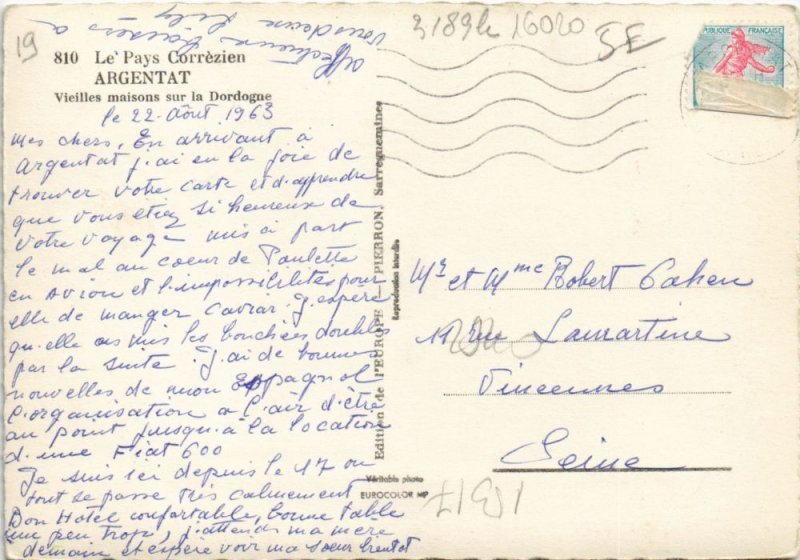 19
810 Le Pays Corrèzien
ARGENTAT
Vieilles maisons sur la Dordogne
le 22 Août 1963
Mes chers, En arrivant à
Argentat j'ai eu la joie de
trouver votre carte et d'apprendre
que vous étiez si heureux de
votre voyage mis à part
le mal au coeur de Paulette
en avion et l'impossibilités pour
elle de manger caviar. J'espère
qu'elle as mis les bouchées double
par la suite. J'ai de bonnes
nouvelles de mon Espagnol
l'organisation a l'air d'être
au point jusqu'à la location
d'une Fiat 600
Je suis ici depuis le 17 ou
tout se passe très calmement
Bon Hotel confortable, bonne table
un peu trop, j'attends ma mère
demain et espère voir ma soeur bientot
Affectueux baisers a
vous deux Lily
Edition de l'EUROPE PIERRON, Sarreguemines
Reproduction interdite
Véritable photo
EUROCOLOR MP
3189k 16020
5E
REPUBLIQUE FRANÇAISE
Mr et Mme Robert Cahen
11 rue Lamartine
Vincennes
Seine